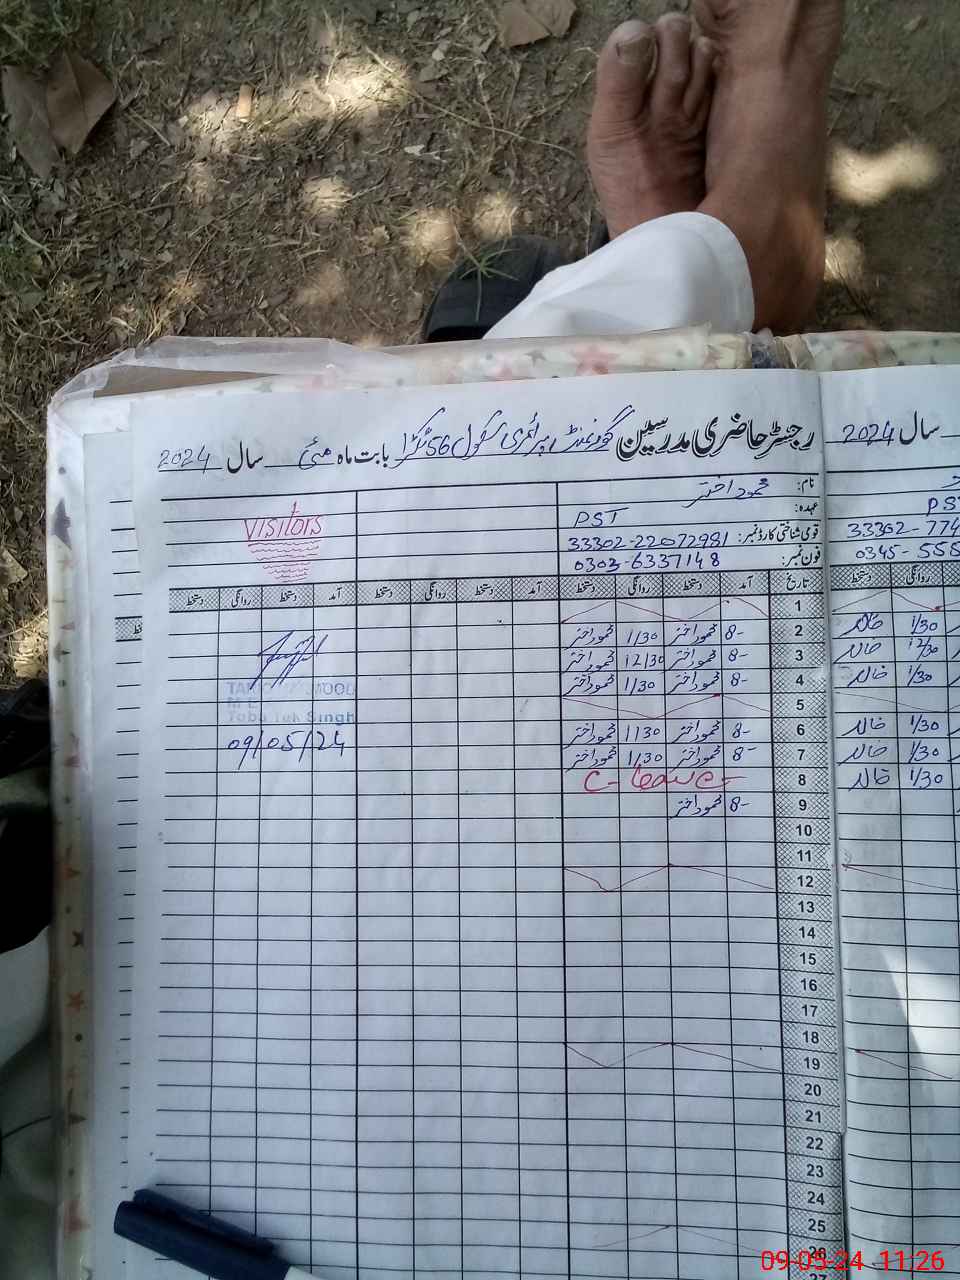 رجسٹر حاضری مدرسین گورنمنٹ پرائمری سکول 56 ٹکڑا بابت ماہ مئی سال 2024
سال 2024
نام: محمود اختر
عہدہ: PST
PST
قومی شناختی کارڈ نمبر: 33302-22072981
33302-774
فون نمبر: 0303-6337148
0345-558
VISITORS
تاریخ آمد دستخط روانگی دستخط آمد دستخط روانگی دستخط آمد دستخط روانگی دستخط
روانگی دستخط
1
2 8- محمود اختر 1/30 محمود اختر
1/30 خالد
3 8- محمود اختر 12/30 محمود اختر
12/30 خالد
4 8- محمود اختر 1/30 محمود اختر
1/30 خالد
5
6 8- محمود اختر 1130 محمود اختر
1/30 خالد
7 8- محمود اختر 1/30 محمود اختر
1/30 خالد
8 C-Leave-
1/30 خالد
9 8- محمود اختر
10
11
12
13
14
15
16
17
18
19
20
21
22
23
24
25
26
27
Toba Tek Singh
09/05/24
09-05-24 11:26